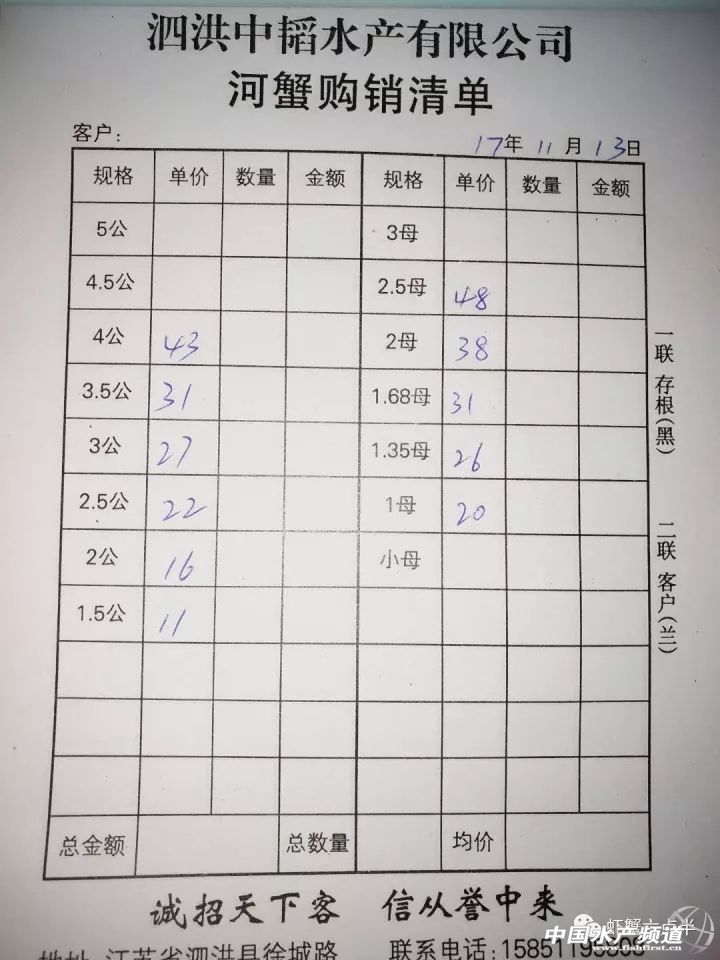 泗洪中韬水产有限公司
河蟹购销清单
客户: 17年 11月 13日
规格 单价 数量 金额 规格 单价 数量 金额
5公 3母
4.5公 2.5母 48
4公 43 2母 38
3.5公 31 1.68母 31
3公 27 1.35母 26
2.5公 22 1母 20
2公 16 小母
1.5公 11
总金额 总数量 均价
一联 存根(黑)
二联 客户(兰)
诚招天下客 信从誉中来
虾蟹六点半
地址:江苏省泗洪县徐城路 联系电话:1585119
中国水产频道
www.fishfirst.cn